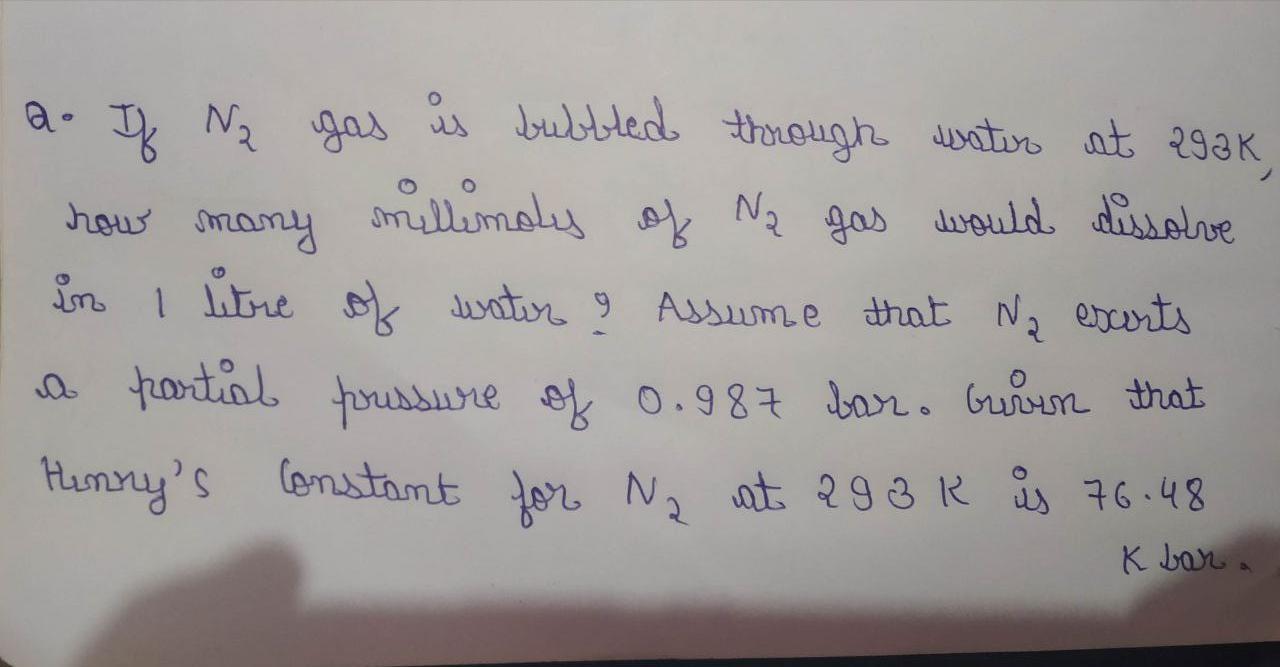 Q. If N₂ gas is bubbled through water at 293K,
how many millimoles of N₂ gas would dissolve
in 1 litre of water? Assume that N₂ exerts
a partial pressure of 0.987 bar. Given that
Henry's Constant for N₂ at 293 K is 76.48
K bar.